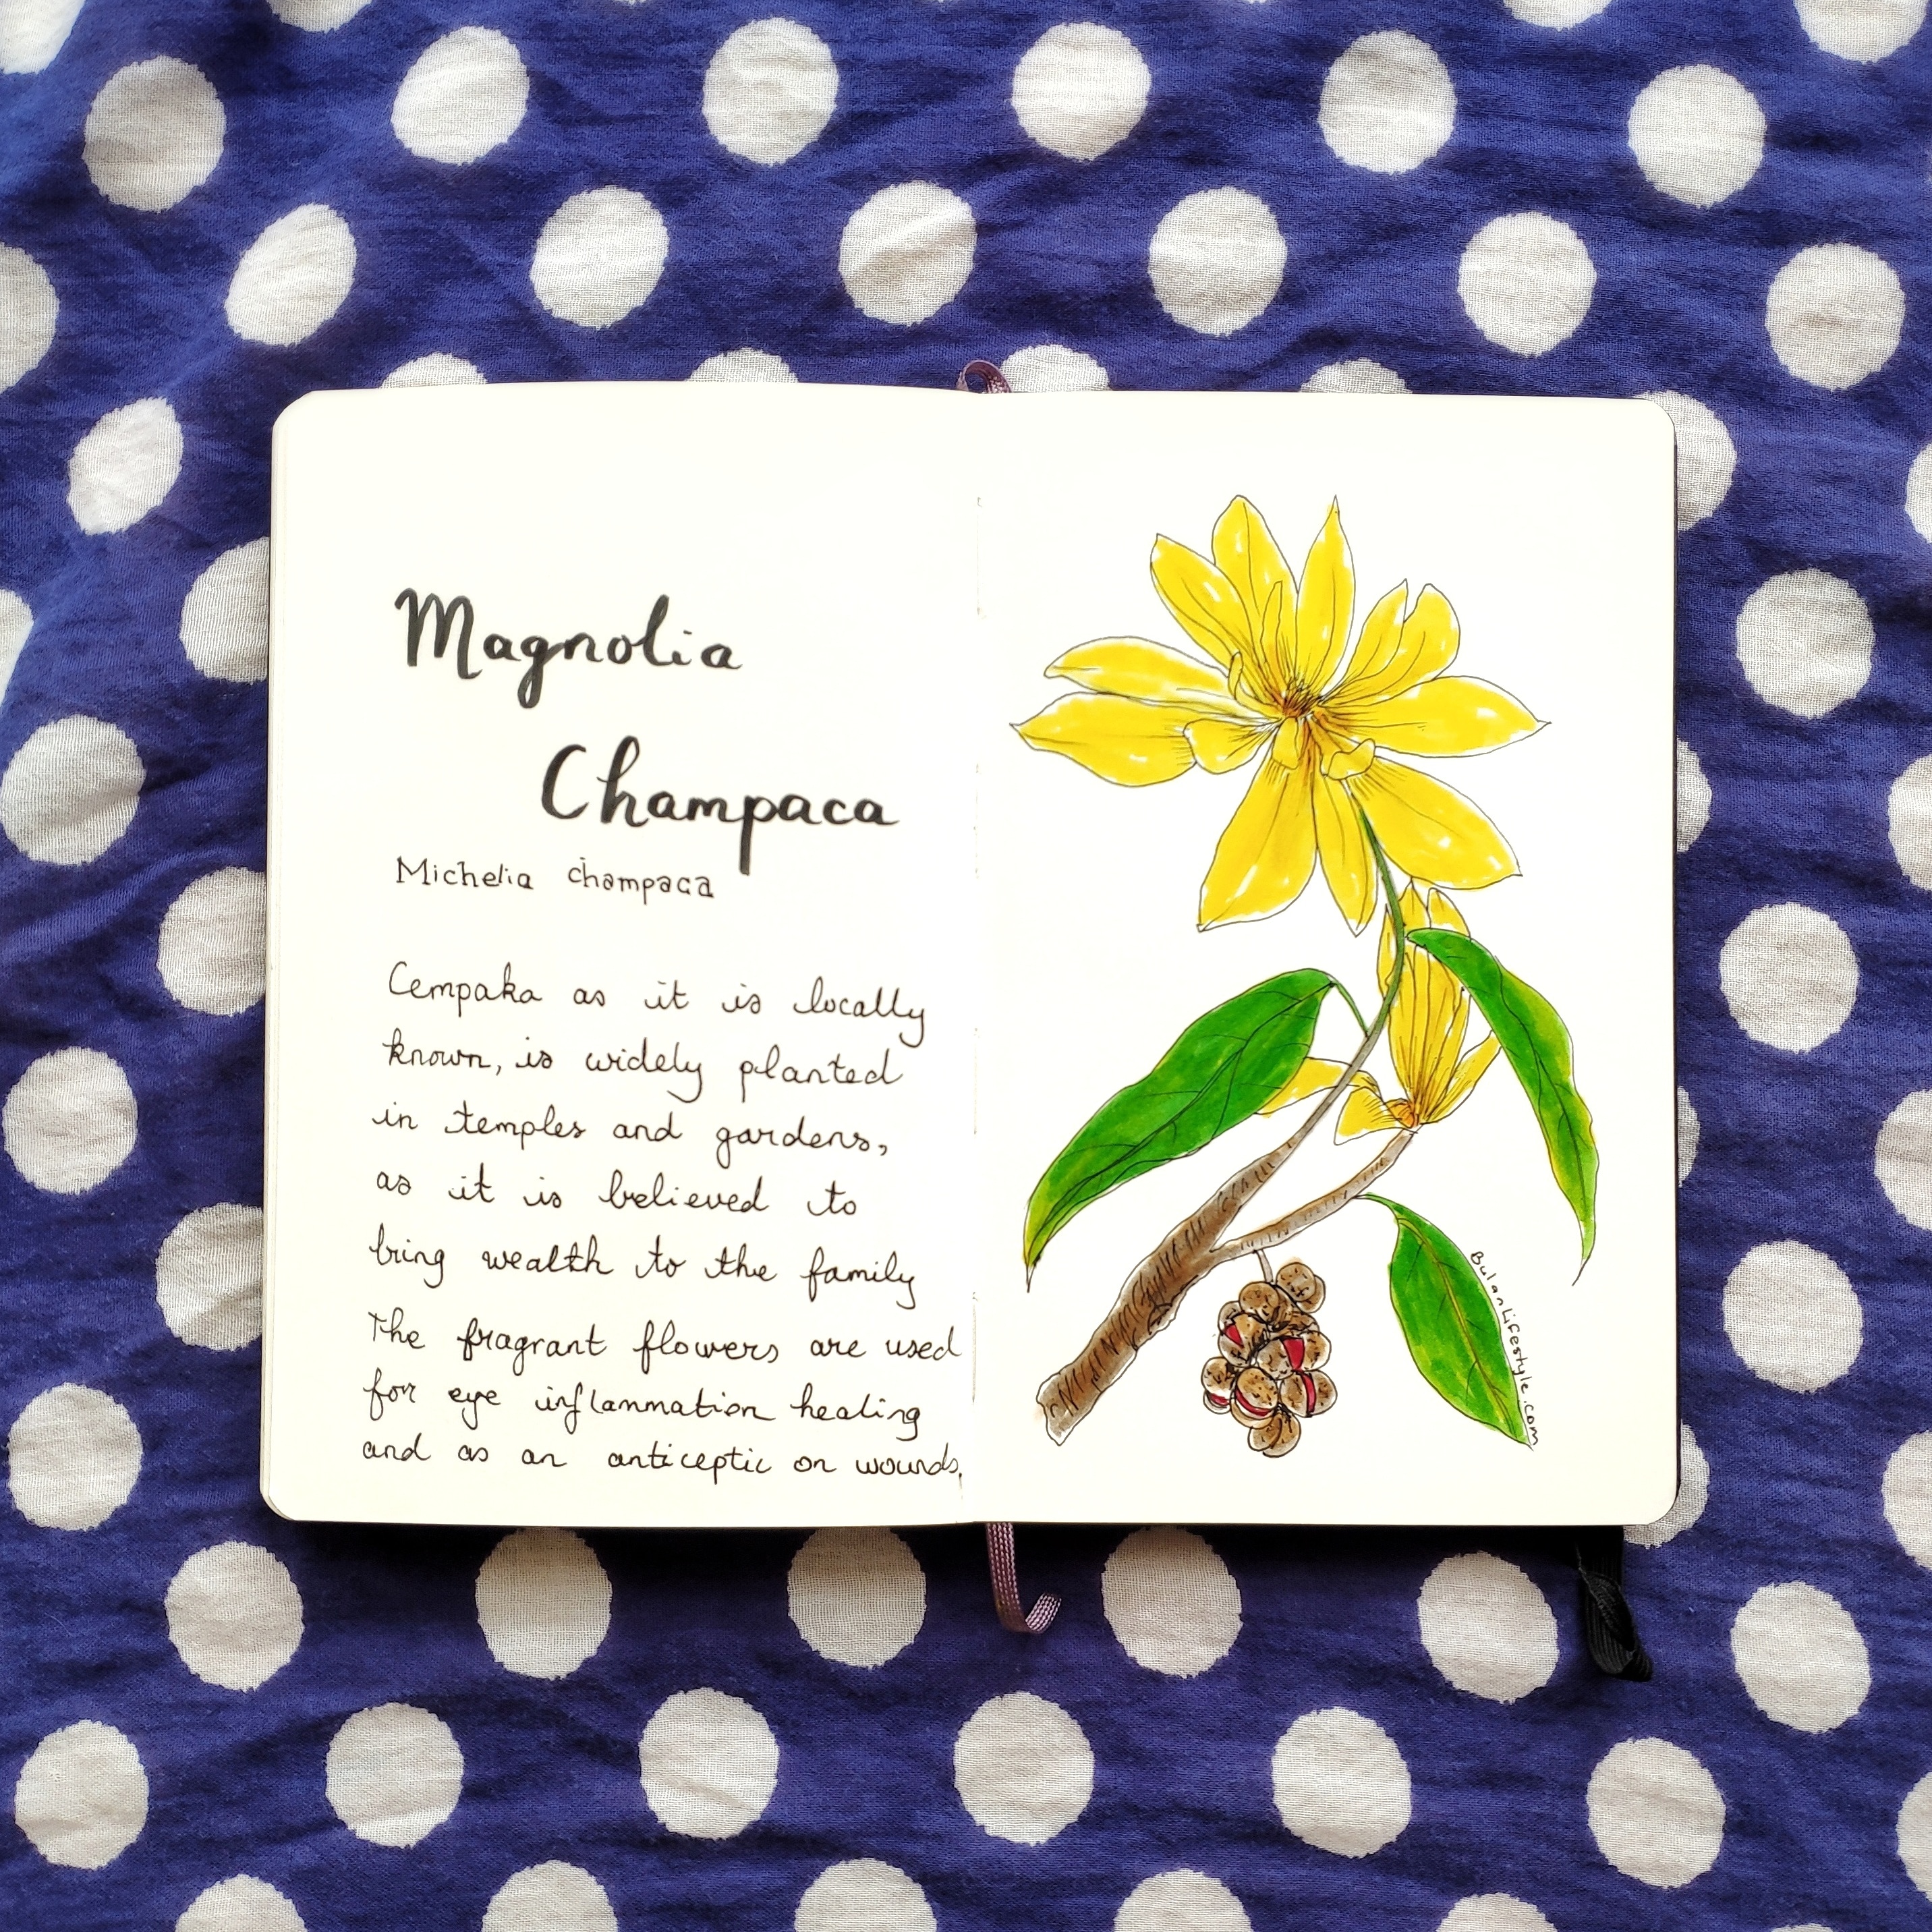 Magnolia
Champaca
Michelia champaca
Cempaka as it is locally
known, is widely planted
in temples and gardens,
as it is believed to
bring wealth to the family
The fragrant flowers are used
for eye inflammation healing
and as an anticeptic on wounds.
BulanLifestyle.com